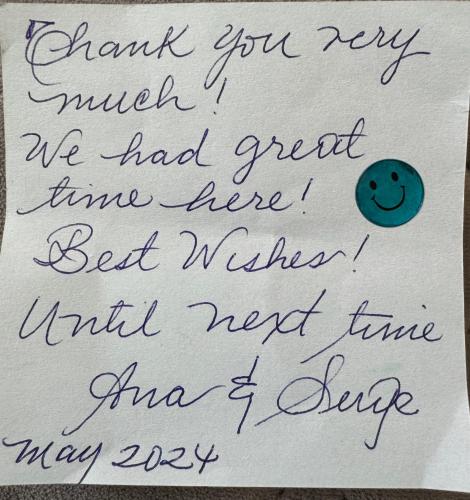 Thank you very
much!
We had great
time here!
Best Wishes!
Until next time
Ana & Serge
May 2024